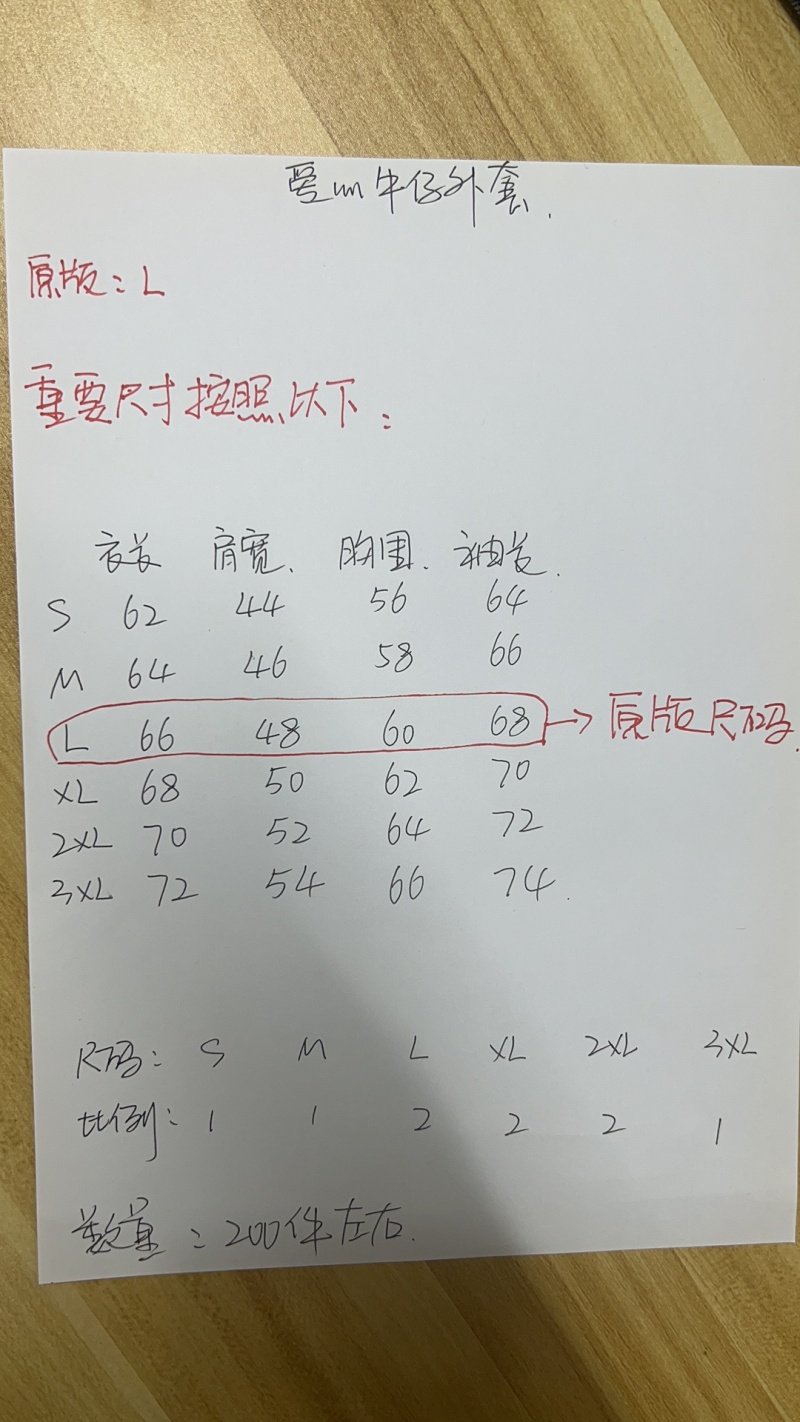 牛仔外套.
原版: L
重要尺寸按照以下:
衣长 肩宽. 胸围. 袖长.
S 62 44 56 64
M 64 46 58 66
L 66 48 60 68 → 原版尺码.
XL 68 50 62 70
2XL 70 52 64 72
3XL 72 54 66 74.
尺码: S M L XL 2XL 3XL
比例: 1 1 2 2 2 1
数量: 200件左右.